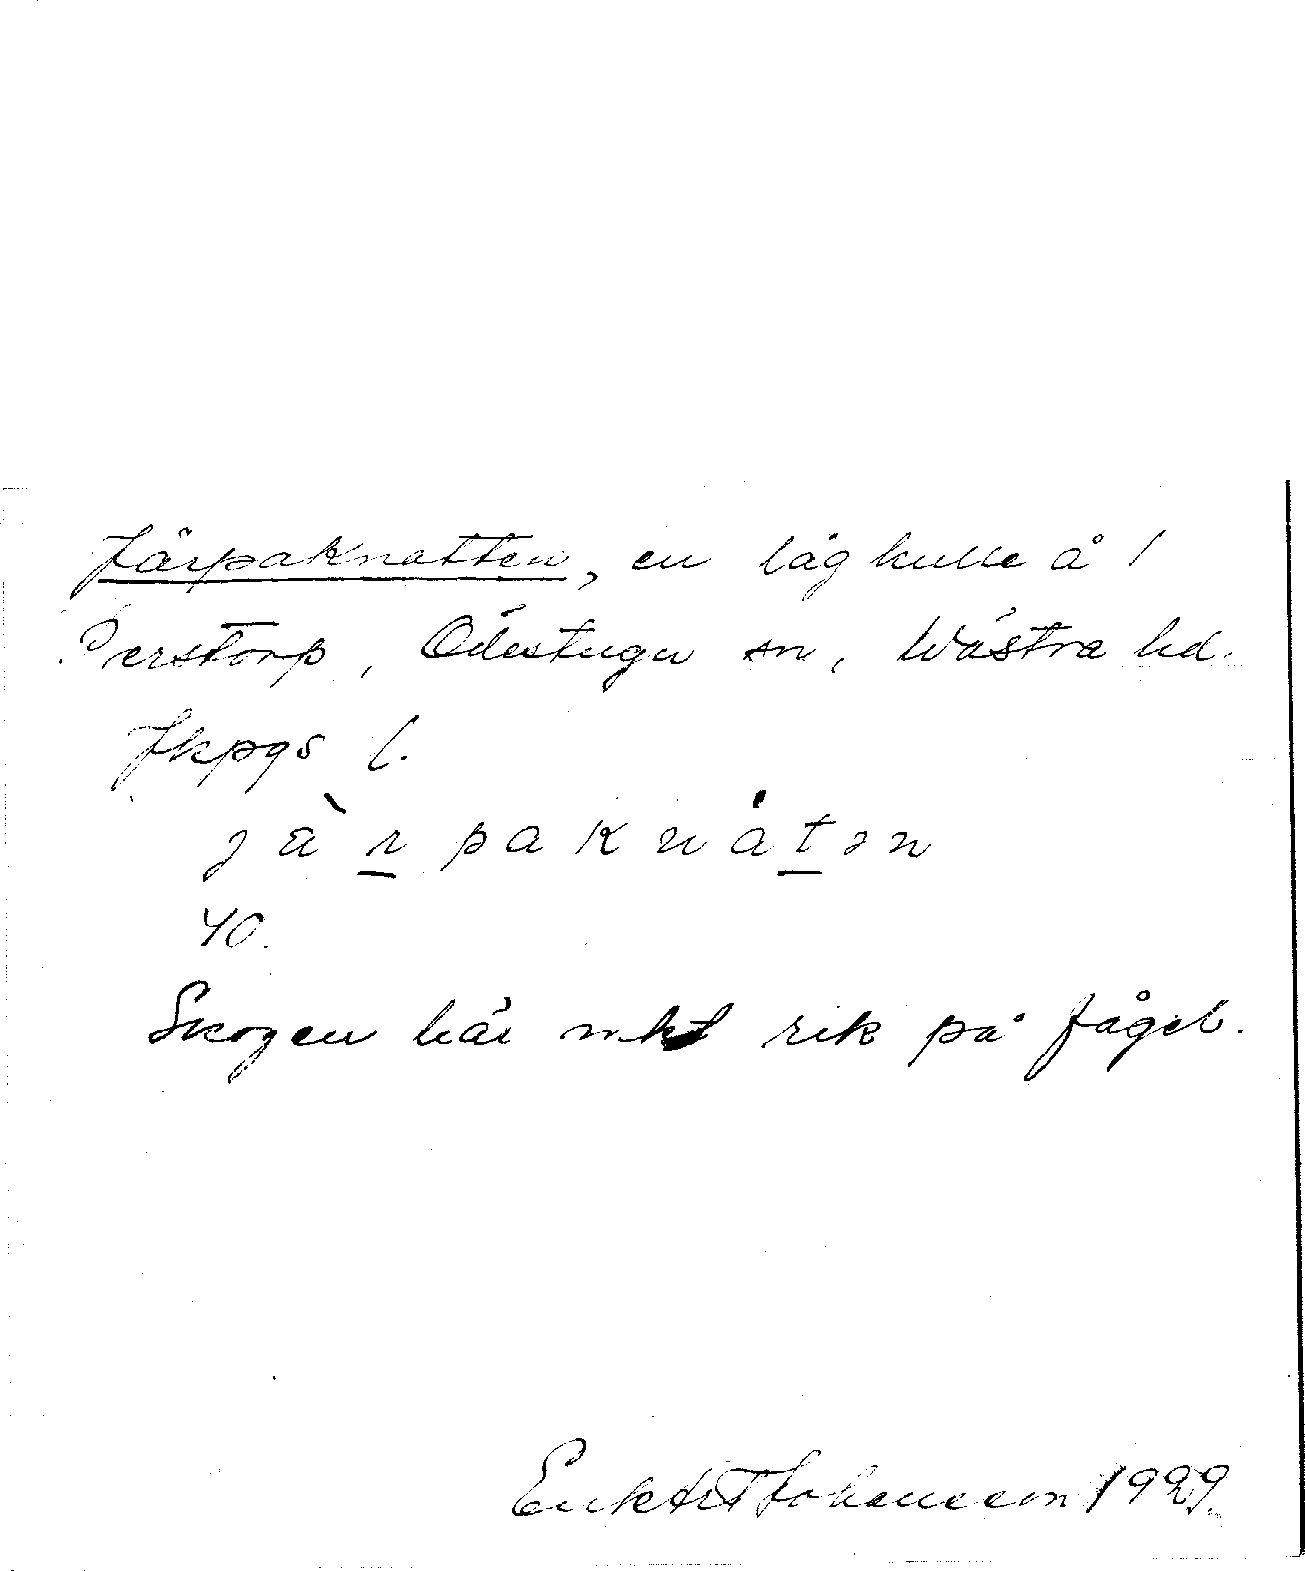 Järpaknatten, en låg kulle å 1
Perstorp, Ödestugu sn, Wästra hd.
Jkpgs l.
jä̀rpaknåtən
40.
Skogen här mkt rik på fågel.
Johansson 1929.